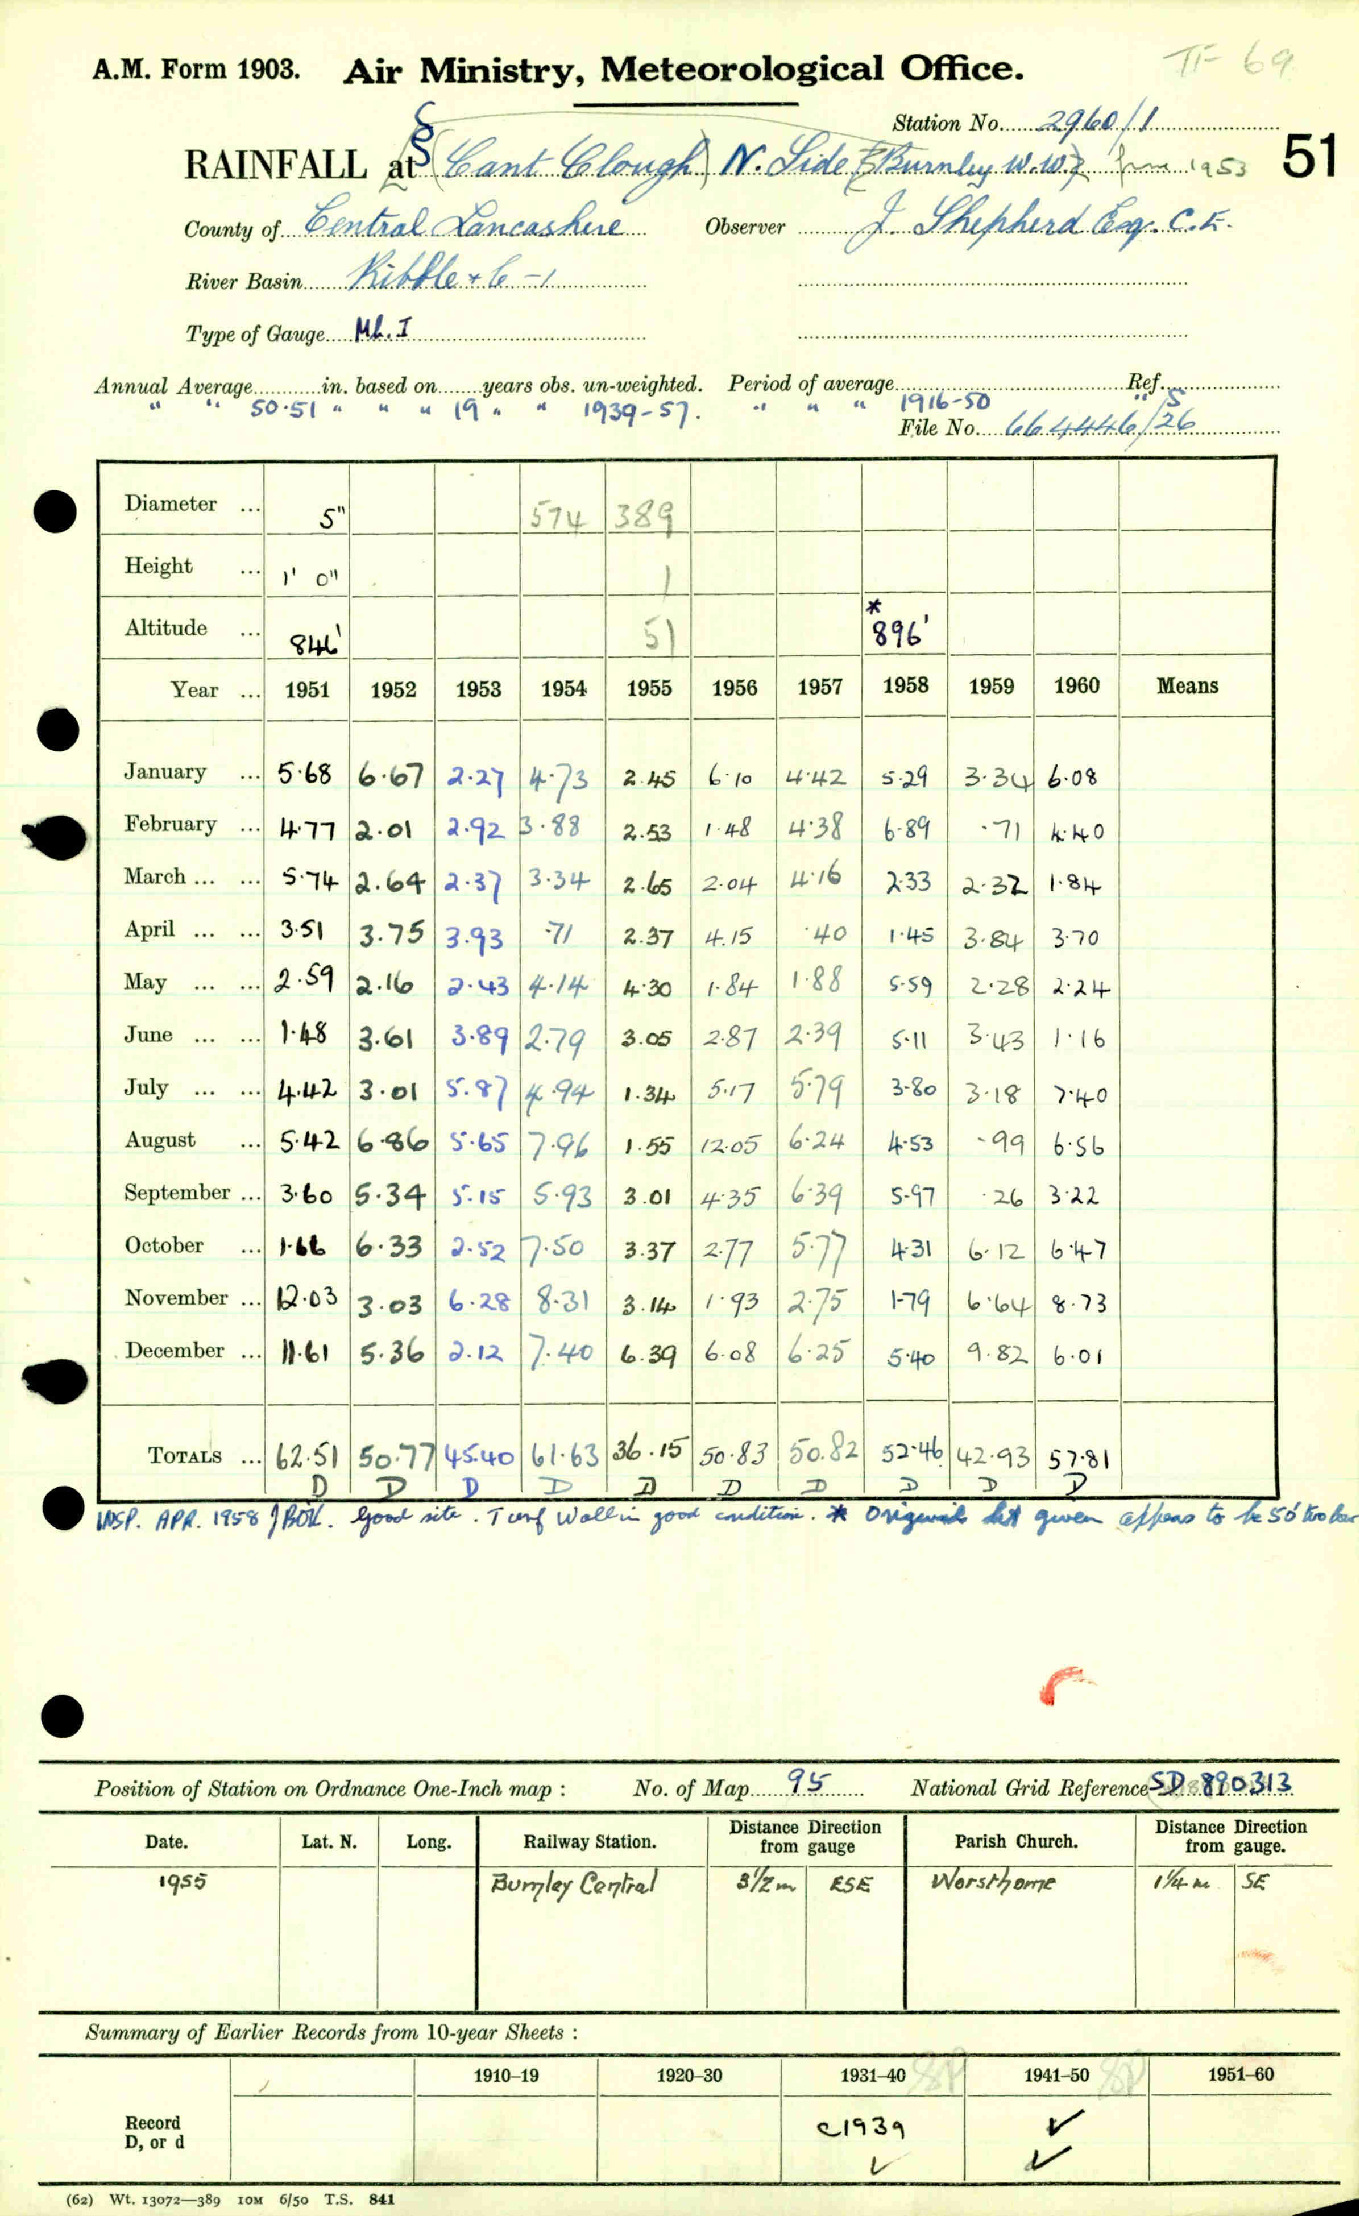 TF 69
A.M. Form 1903. Air Ministry, Meteorological Office.
Station No. 2960/1
RAINFALL at § § (Cant Clough) N. Side (Burnley W.W.) from 1953 51
County of Central Lancashire Observer J. Shepherd Esq. C.E.
River Basin Ribble + 6-1
Type of Gauge Mk. I
Annual Average in. based on years obs. un-weighted. Period of average Ref.
" " 50.51 " " " 19 " " 1939-57. " " " 1916-50 " S
File No. 664446/26
Diameter ... 5" 574 389
Height ... 1' 0" 1
Altitude ... 846' 51 * 896'
Year ... 1951 1952 1953 1954 1955 1956 1957 1958 1959 1960 Means
January ... 5.68 6.67 2.27 4.73 2.45 6.10 4.42 5.29 3.34 6.08
February ... 4.77 2.01 2.92 3.88 2.53 1.48 4.38 6.89 .71 4.40
March ... ... 5.74 2.64 2.37 3.34 2.65 2.04 4.16 2.33 2.32 1.84
April ... ... 3.51 3.75 3.93 .71 2.37 4.15 .40 1.45 3.84 3.70
May ... ... 2.59 2.16 2.43 4.14 4.30 1.84 1.88 5.59 2.28 2.24
June ... ... 1.48 3.61 3.89 2.79 3.05 2.87 2.39 5.11 3.43 1.16
July ... ... 4.42 3.01 5.87 4.94 1.34 5.17 5.79 3.80 3.18 7.40
August ... 5.42 6.86 5.65 7.96 1.55 12.05 6.24 4.53 .99 6.56
September ... 3.60 5.34 5.15 5.93 3.01 4.35 6.39 5.97 .26 3.22
October ... 1.66 6.33 2.52 7.50 3.37 2.77 5.77 4.31 6.12 6.47
November ... 12.03 3.03 6.28 8.31 3.14 1.93 2.75 1.79 6.64 8.73
December ... 11.61 5.36 2.12 7.40 6.39 6.08 6.25 5.40 9.82 6.01
TOTALS ... 62.51 50.77 45.40 61.63 36.15 50.83 50.82 52.46 42.93 57.81
D D D D D D D D D D
INSP. APR. 1958 Good site. Turf Wall in good condition. * Original ht given appears to be 50' too low
Position of Station on Ordnance One-Inch map : No. of Map 95 National Grid Reference SD 890313
Date. Lat. N. Long. Railway Station. Distance Direction from gauge Parish Church. Distance Direction from gauge.
1955 Burnley Central 3 1/2 m ESE Worsthorne 1 1/4 m SE
Summary of Earlier Records from 10-year Sheets :
1910-19 1920-30 1931-40 1941-50 1951-60
Record D, or d c1939 ✓
✓ ✓
(62) Wt. 13072—389 10M 6/50 T.S. 841